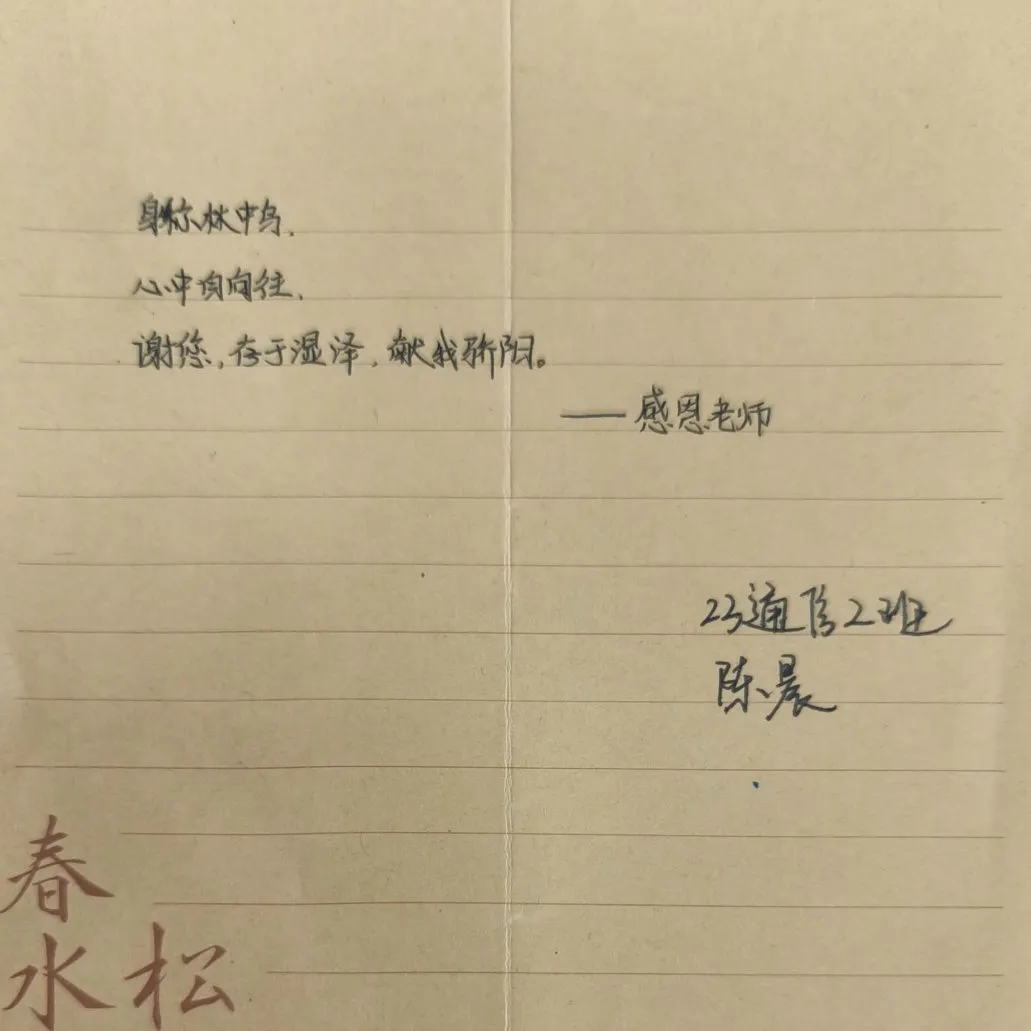 身称林中鸟,
心中自向往,
谢您,存于湿泽,献我骄阳。
——感恩老师
23通信2班
陈晨
春
水松